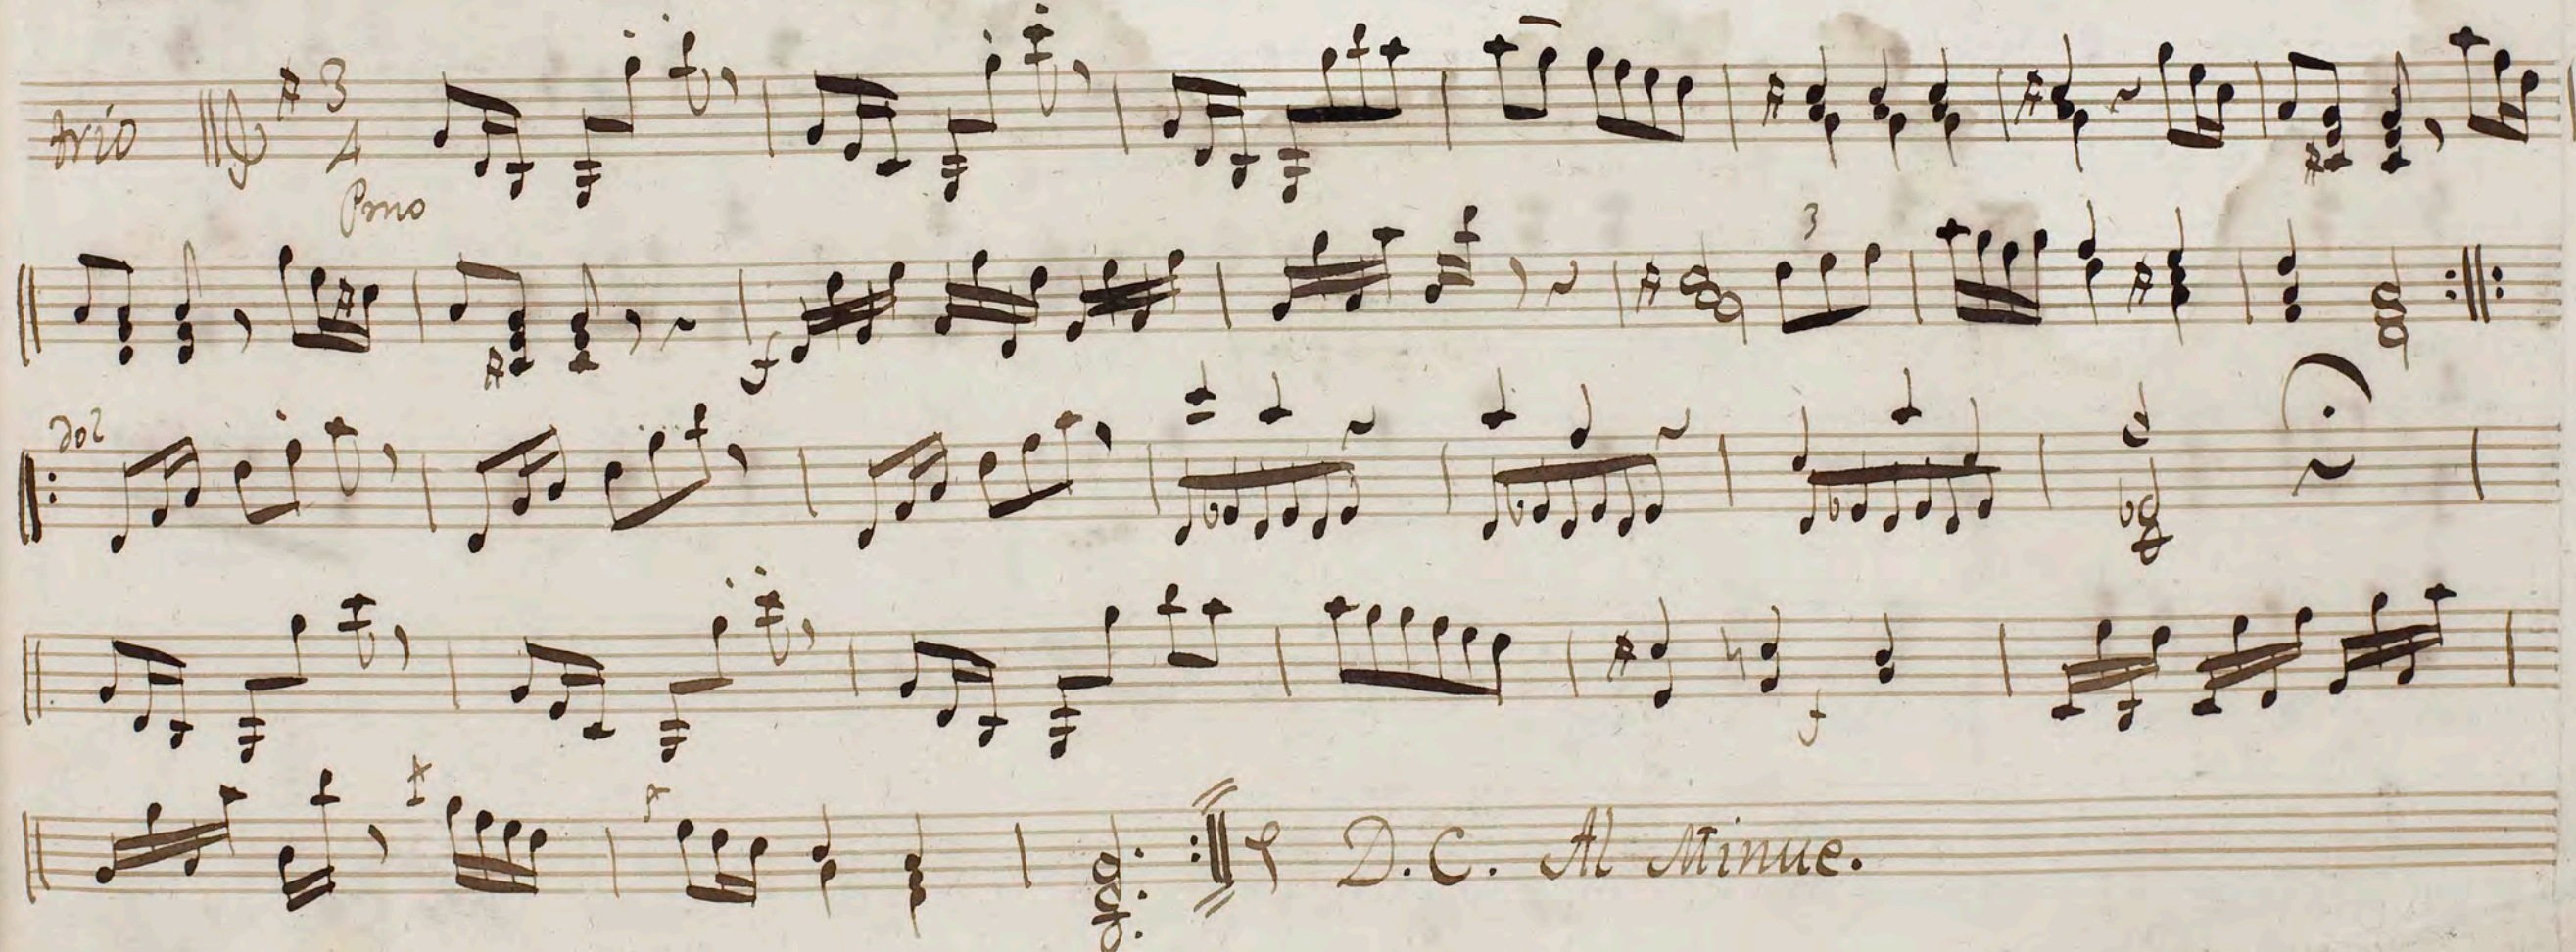 trio 3
4
Pmo
f 3
dol
f
D. C. Al Minue.